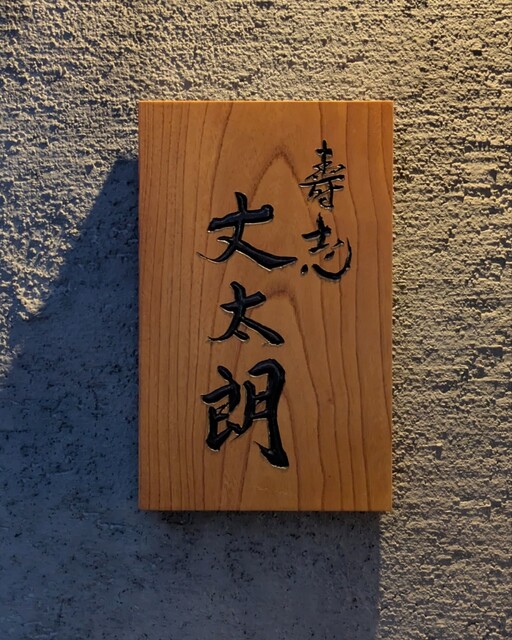 寿志
丈太朗